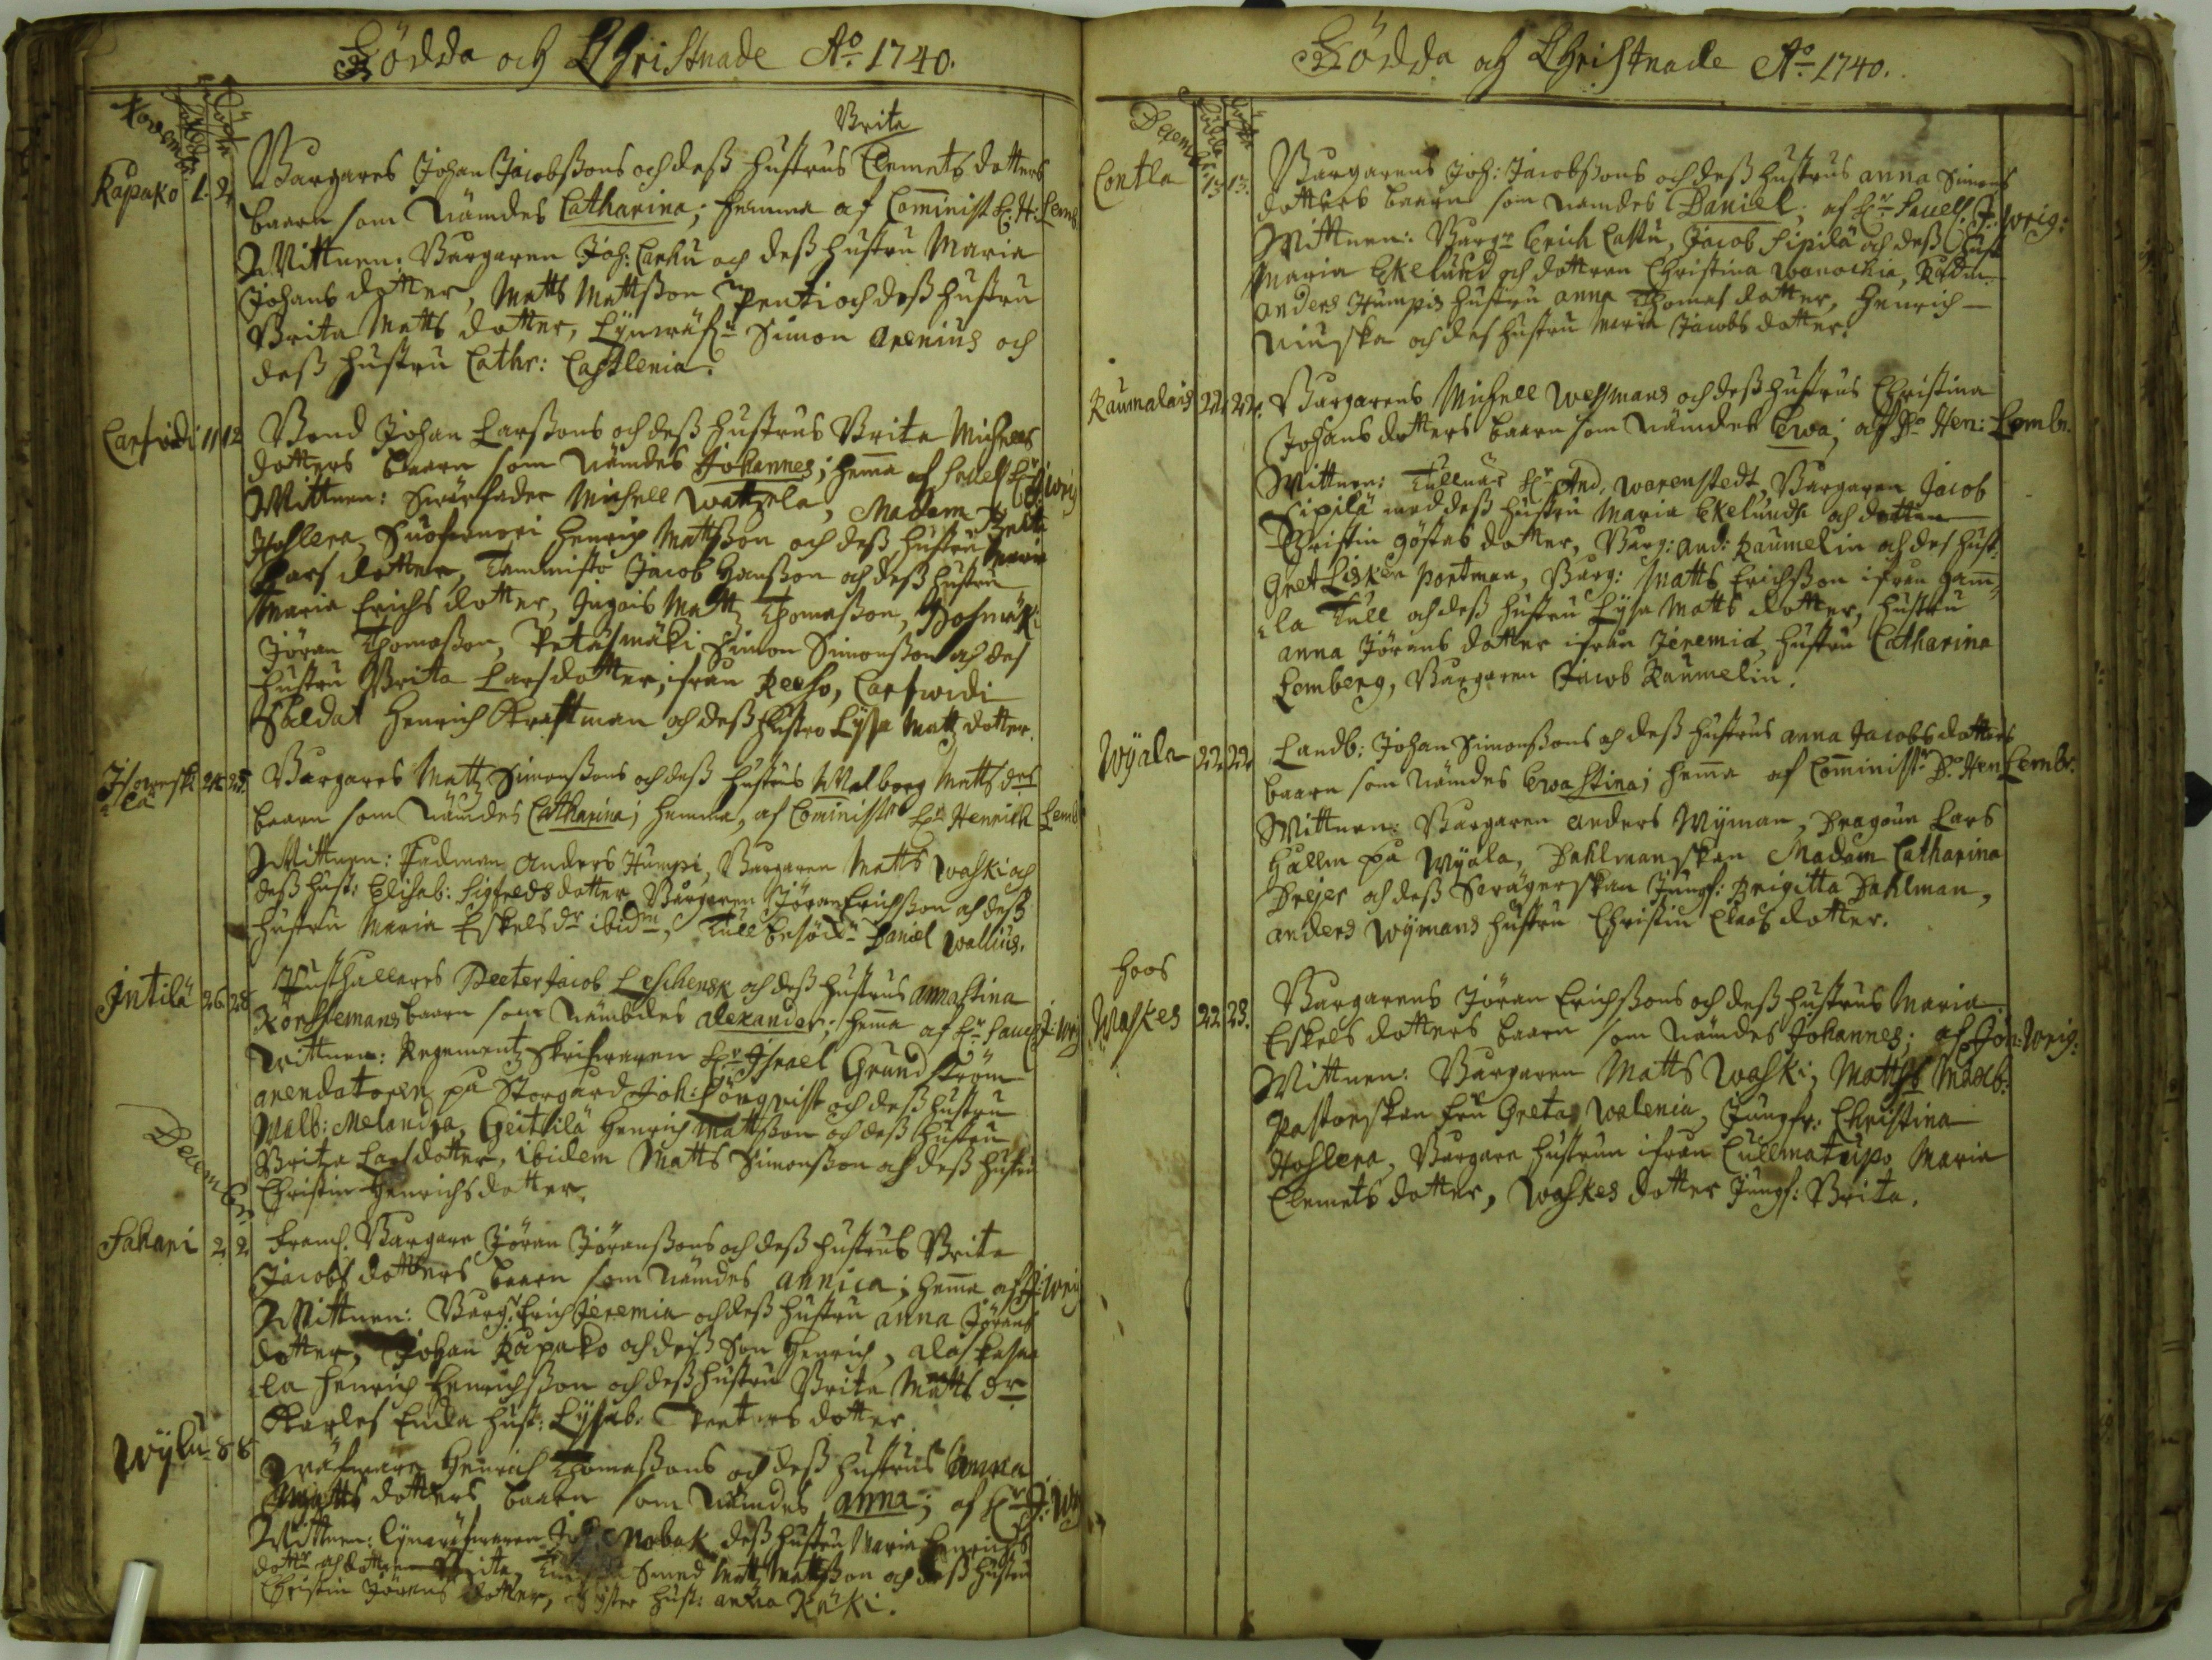 Födda och Christnade Ao 1740.
November
födde
döpte
Brita
Rapako 1. 2. Bargares Johan Jacobßons och deß hustrus Clemets dotters
baarn som nämdes Catharina; hemma af Cominist. H: H: Lemb
Wittnen: Bargaren Joh: Carhu och deß hustru Maria
Johans dotter, Matts Mattßon Pentti och deß hustru
Brita Matts dotter, Linwäf:n Simon Arenius och
deß hustru Cathr: Castlenia.
Carfwidi 11 12 Bond Johan Larßons och deß hustrus Brita Michells
dotters baarn som nämdes Johannes; hemma af Sacell. Hr J: Wrig
Wittnen: Swärfader Michell Wattzela, Madam Brita
Hoslera, Suosmeri Henrich Mattßon och deß hustru Maria
Lars dotter, Tamnisto Jacob Hanßon och deß hustru
Maria Erichs dotter, Ingois Mattz Thomaßon,
Jöran Thomaßon, Petäsmäki Simon Simonßon och des
hustru Brita Larsdotter, ifrån Reeho, Carfwidi
Saldat Henrich Krafftman och deß hustro Lyßa Mattz dotter.
24. 25. Bargares Mattz Simonßons och deß hustrus Walborg Matts drs
baarn som nämdes Catharina; hemma, af Cominist. Hr Henrich Lemb
Wittnen: Anders Humpi, Bargaren Matts Waski och
deß hust: Elisab: Sigfreds dotter Bargaren Jöran Erichßon och deß
hustru Maria Eskels dr ibidm, Tullbesökn Daniel Wallius.
Intilä 26. 28 Rusthallares Peeter Jacob Leschensk och deß hustrus Annastina
Körstemans baarn som nämbdes Alexander; hemma af Hr Sacel. J: Wrig
Wittnen: Regementz Skrifwaren Hr Israel Grundström
Arendatoren på Storgård Joh: och deß hustru
Walb: Melandra, Geittilä Henrich Mattßon och deß hustru
Brita Larsdotter, ibidem Matts Simonßon och deß hustru
Christin Henrichs dotter.
Decemb:
Sakari 2. 2. Bargare Jöran Jöranßons och deß hustrus Brita
Jacobs dotters baarn som nämdes Annica; hemma af J: Wrig
Wittnen: Barg: Erich Jeremia och deß hustru Anna Jörans
dotter, Johan Rapako och deß Son Henrich,
la Henrich Henrichßon och deß hustru Brita Matts dr
hust: Lysab: Peeters dotter.
Wylu 8 8 Henrich Thomaßons och deß hustrus Anna
Matts dotters baarn som nämdes Anna; af Hr J: Wrig
Wittnen: Joh: Nobak deß hustru Maria Henrichs
dottr och dottren Brita, Smed Matz Mattßon och deß hustru
Christin Jörans dotter, Syster hust: Anna Räiki.
Födda och Christnade Ao 1740.
December
födde
döpte
Contla 13 13. Bargarens Joh: Jacobßons och deß hustrus Anna Simons
dotters baarn som nämdes Daniel; af Hr Sacell. J: Wrig:
Wittnen: Bargr Erich Lattu, Jacob Sipilä och deß hust
Maria Ekelund och dottren Christina Wanochia, Rådm.
Anders Humpis hustru Anna Thomas dotter, Henrich
Niuska och des hustru Maria Jacobs dotter.
Raumalais 22. 22. Bargarens Michell Weßmans och deß hustrus Christina
Johans dotters baarn som nämdes Ewa; af Do Hen: Lembr.
Wittnen: Tullnär Hr And. Warenstedt, Bargaren Jacob
Sipilä med deß hustru Maria Ekelundh och dottren
Christin Göstas dotter, Barg: And: Raumelin och des hust.
Gret Lisken Portman, Barg: Matts Erichßon ifrån Gam
la Tull och deß hustru Lysa Matts dotter, hustru
Anna Jörans dotter ifrån Jeremia, hustru Catharina
Lemberg, Bargaren Jacob Raumelin.
Wyala 22. 22. Landb: Johan Simonßons och deß hustrus Anna Jacobs dotters
baarn som nämdes Ewastina; hemma af Cominist. Do Hen Lembr.
Wittnen: Bargaren Anders Wyman, Dragoun Lars
Hallm på Wyala, Dahlmanskan Madam Catharina
Dreyer och deß Swägerskan Jungf: Brigitta Dahlman,
Anders Wymans hustru Christin Claas dotter.
Hoos
Waskes 22. 23. Bargarens Jöran Erichßons och deß hustrus Maria
Eskels dotters baarn som nämdes Johannes; af Joh: Wrig:
Wittnen: Bargaren Matts Waski, Matths
Pastorskan fru Greta Walenia, Jungfr: Christina
Hoslera, Bargare hustrun ifrån Cullmatupo Maria
Clemets dotter, Waskes dotter Jungf: Brita.